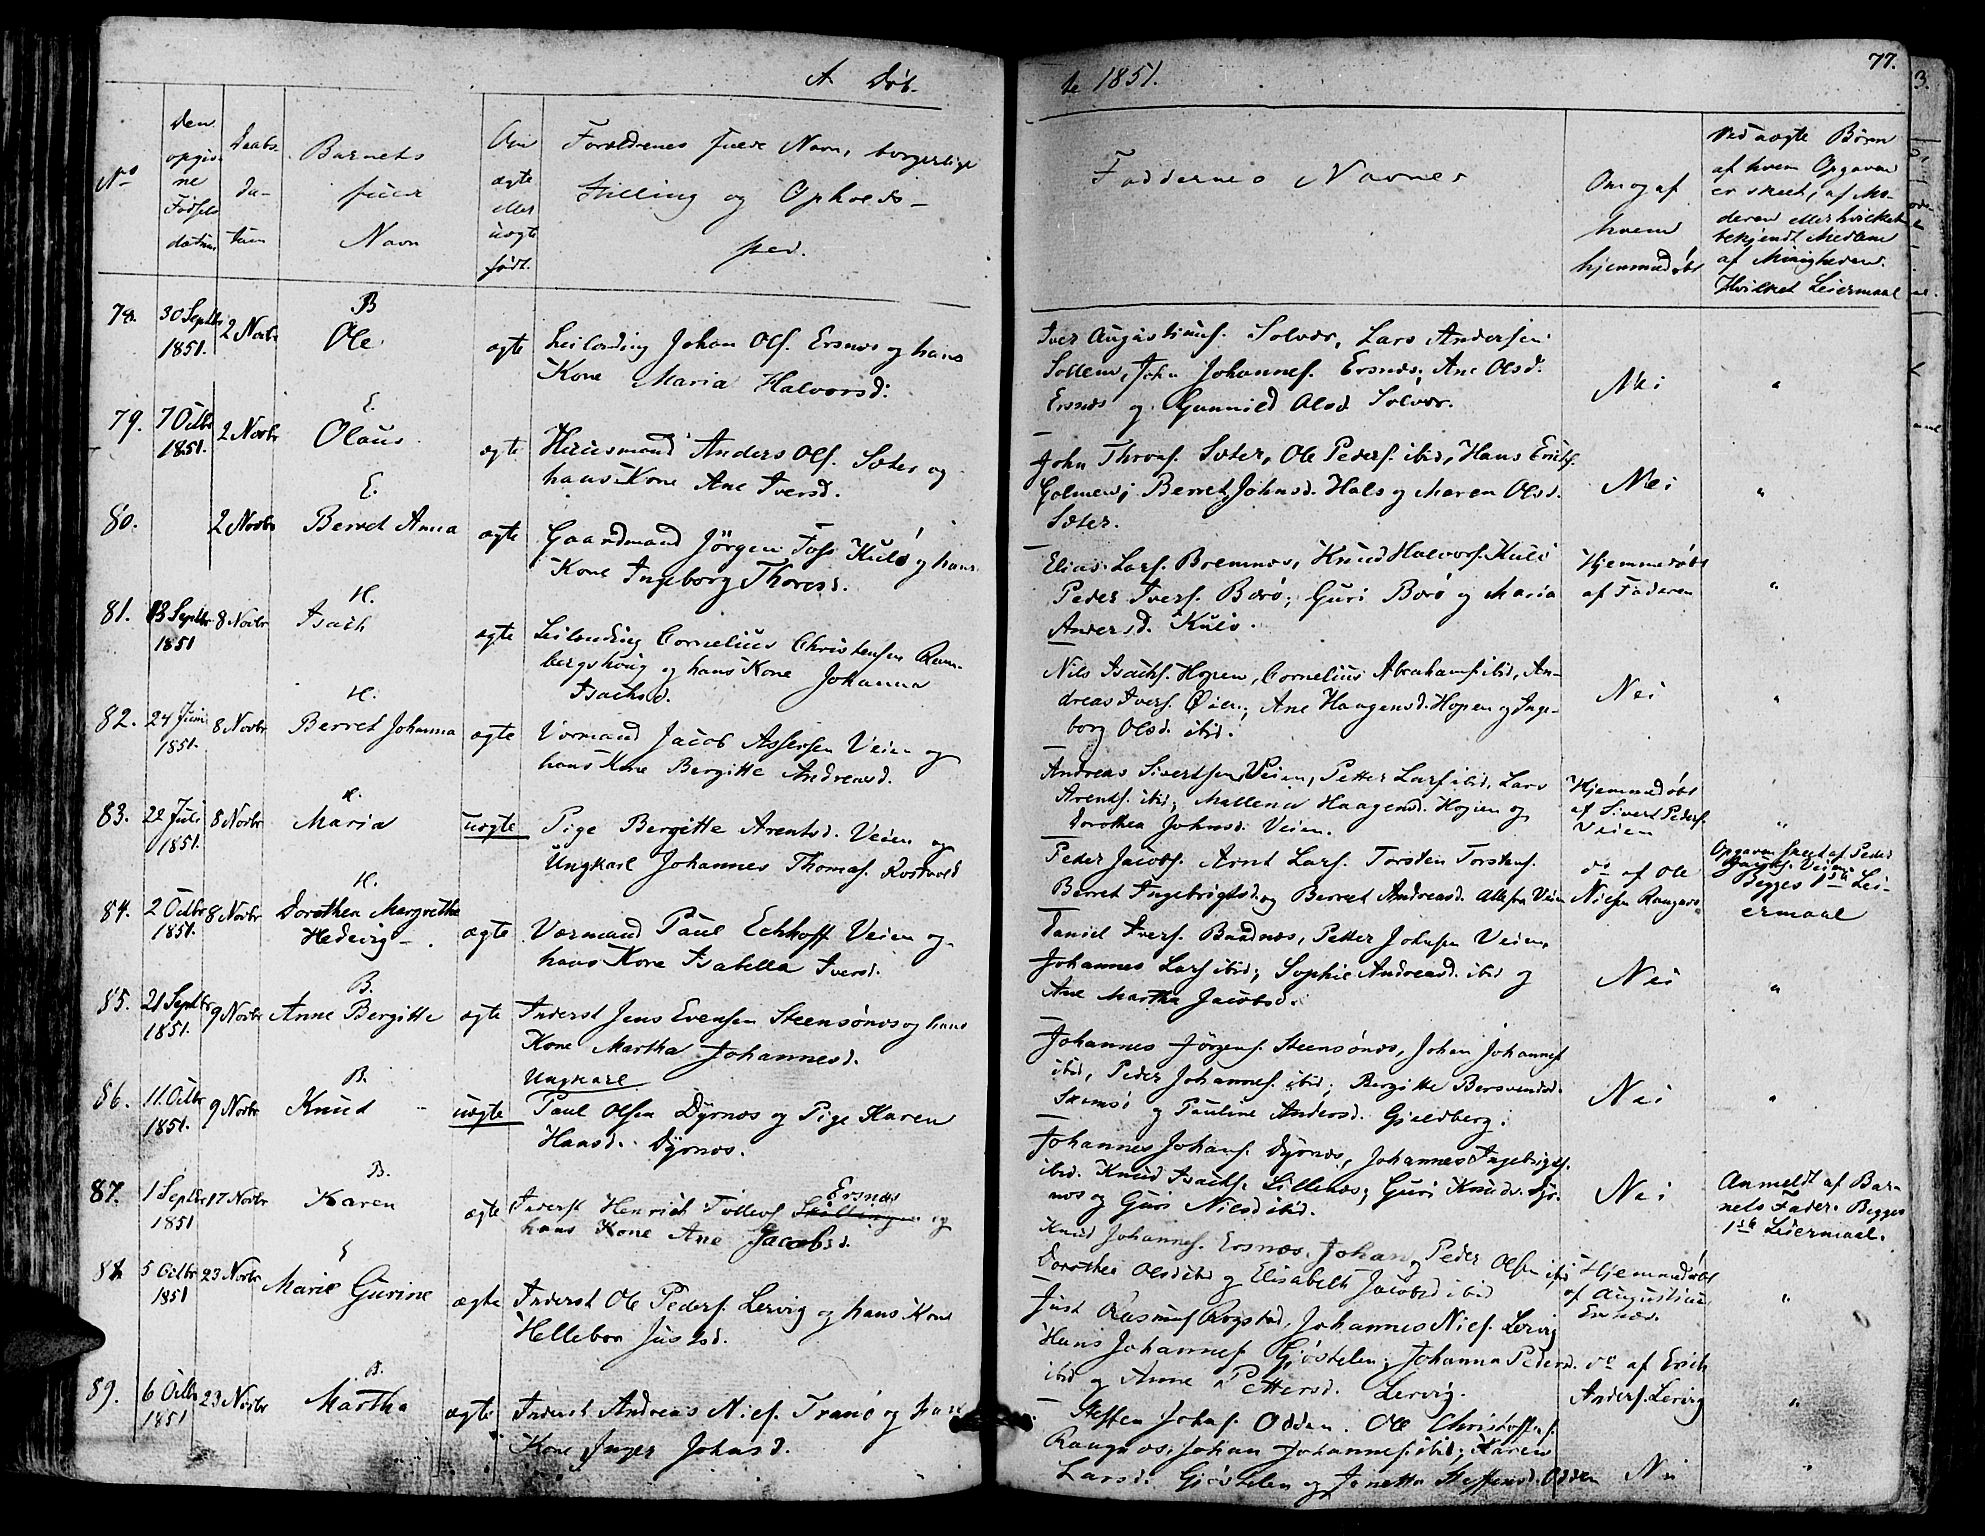 A Døb-
te 1851.
77.
No
Den opgivne Fødselsdatum
Daabsdatum
Barnets fulde Navn
Om ægte eller uægte født.
Forældrenes fulde Navn, borgerlige
Stilling og Opholds-
sted.
Faddernes Navne
Om og af hvem hjemmedøbt
Ved uægte Børn
af hvem Opgaven
er skeet, af Mo-
deren eller hvilket
bekjendt Medlem
af Menigheden.
Hvilket Leiermaal
78. 30 Septbr 1851. 2 Novbr B Ole ægte
Leilending Johan Ols. Ersnæs og hans
Kone Maria Halvorsd:
Iver Augustinus. Solvær, Lars Andersen
Sollem, John Johannes. Ersnæs; Ane Olsd.
Ersnæs og Gunnild Olsd. Solvær.
Nei "
79. 7 Octbr 1851. 2 Novbr E. Olaus ægte
Huusmand Anders Ols. Sæter og
hans Kone Ane Iversd.
John Throns. Sæter, Ole Peders. ibid, Hans Erichs.
Golmen; Berret Johnsd. Hals og Maren Olsd.
Sæter.
Nei "
80. 2 Novbr E. Berret Anna ægte
Gaardmand Jörgen Kulö og hans
Kone Ingeborg Thoresd.
Elias Lars. Bremnæs, Knud Halvors. Kulö
Peder Ivers. Borö; Guri Borö og Maria
Andersd. Kulö.
Hjemmedøbt
af Faderen "
81. 13 Septbr 1851 8 Novbr H. Isach ægte
Leilending Cornelius Christensen Ram-
bergshoug og hans Kone Johanna
Isachsd.
Nils Isachs. Hopen, Cornelius Abrahams. ibid, An-
dreas Ivers. Øien; Ane Haagensd. Hopen og Inge-
borg Olsd. ibid.
Nei "
82. 24 Juni 1851. 8 Novbr H. Berret Johanna ægte
Vormand Jacob Assersen Veien og
hans Kone Bergitte Andreasd.
Andreas Sivertsen Veien, Petter Lars. ibid, Lars
Arents. ibid; Mallena Haagensd. Hopen og
Dorothea Johnsd. Veien.
Hjemmedøbt
af Sivert Peders.
Veien "
83. 22 Juli 1851. 8 Novbr H. Maria uægte
Pige Bergitte Arentsd. Veien og
Ungkarl Johannes Thomas. Rostvold
Peder Jacobs. Arnt Lars. Torsten Torstens.
Berret Ingebrigtsd. og Berret Andreasd. Alle fra Veien
do af Ole
Nielsen Raugnæs
Opgaven skeet af Peder
Jacobs. Veien
Begges 1ste Lei-
ermaal
84. 2 Octbr 1851. 8 Novbr H. Dorothea Margretha
Hedvig - ægte
Vormand Paul Eckhoff Veien og
hans Kone Isabella Iversd.
Daniel Ivers. Buadnæs, Petter Johnsen Veien,
Johannes Lars. ibid; Sophie Andreasd. ibid og
Ane Martha Jacobsd.
Nei "
85. 21 Septbr 1851. 9 Novbr B. Anne Bergitte ægte
Inderst Jens Evensen Steensönæs og hans
Kone Martha Johannesd.
Johannes Jörgens. Steensönæs, Johan Johannes.
ibid, Peder Johannes. ibid; Bergitte Bersvendsd.
og Pauline Andersd. Gjeldberg.
Nei "
86. 11 Octbr 1851. 9 Novbr B. Knud uægte
Ungkarl
Paul Olsen Dyrnæs og Pige Karen
Hansd. Dyrnæs.
Johannes Johans. Dyrnæs, Johannes Ingebrigts.
ibid. Knud Isachs. Lillenæs; Guri Knudsd. Dyr-
næs og Guri Nilsd ibid.
Nei
Anmeldt af Bar-
nets Fader. Begges
1ste Leiermaal.
87. 1 Septbr 1851 17 Novbr B. Karen ægte
Ersnæs
Inderst Henrich Tollevs. og
hans Kone Ane Jacobsd.
Knud Johannes. Ersnæs. Johan og Peder Olsen ibid
Dorothea Olsd ibid og Elisabeth Jacobsd ibid
Hjemmedøbt
af Augustinus
Ersnæs. "
88. 5 Octbr 1851 23 Novbr E Marie Gurine ægte
Inderst Ole Peders. Lervig og hans Kone
Helleborr Justsd.
Just Rasmus. Rogstad, Johannes Niels. Lervig
Hans Johannes. Gjöstelen; Johanna Pedersd.
ibid og Anne Pettersd. Lervig.
do af Erich
Anders. Lervig "
89. 6 Octbr 1851 23 Novbr B. Martha ægte
Inderst Andreas Niels. Tranö og hans
Kone Inger Johnsd.
Steffen Johns. Odden. Ole Christoffers.
Raugnæs, Johan Johannes. ibid; Karen
Larsd. Gjöstelen og Janetta Steffensd. Odden
Nei "